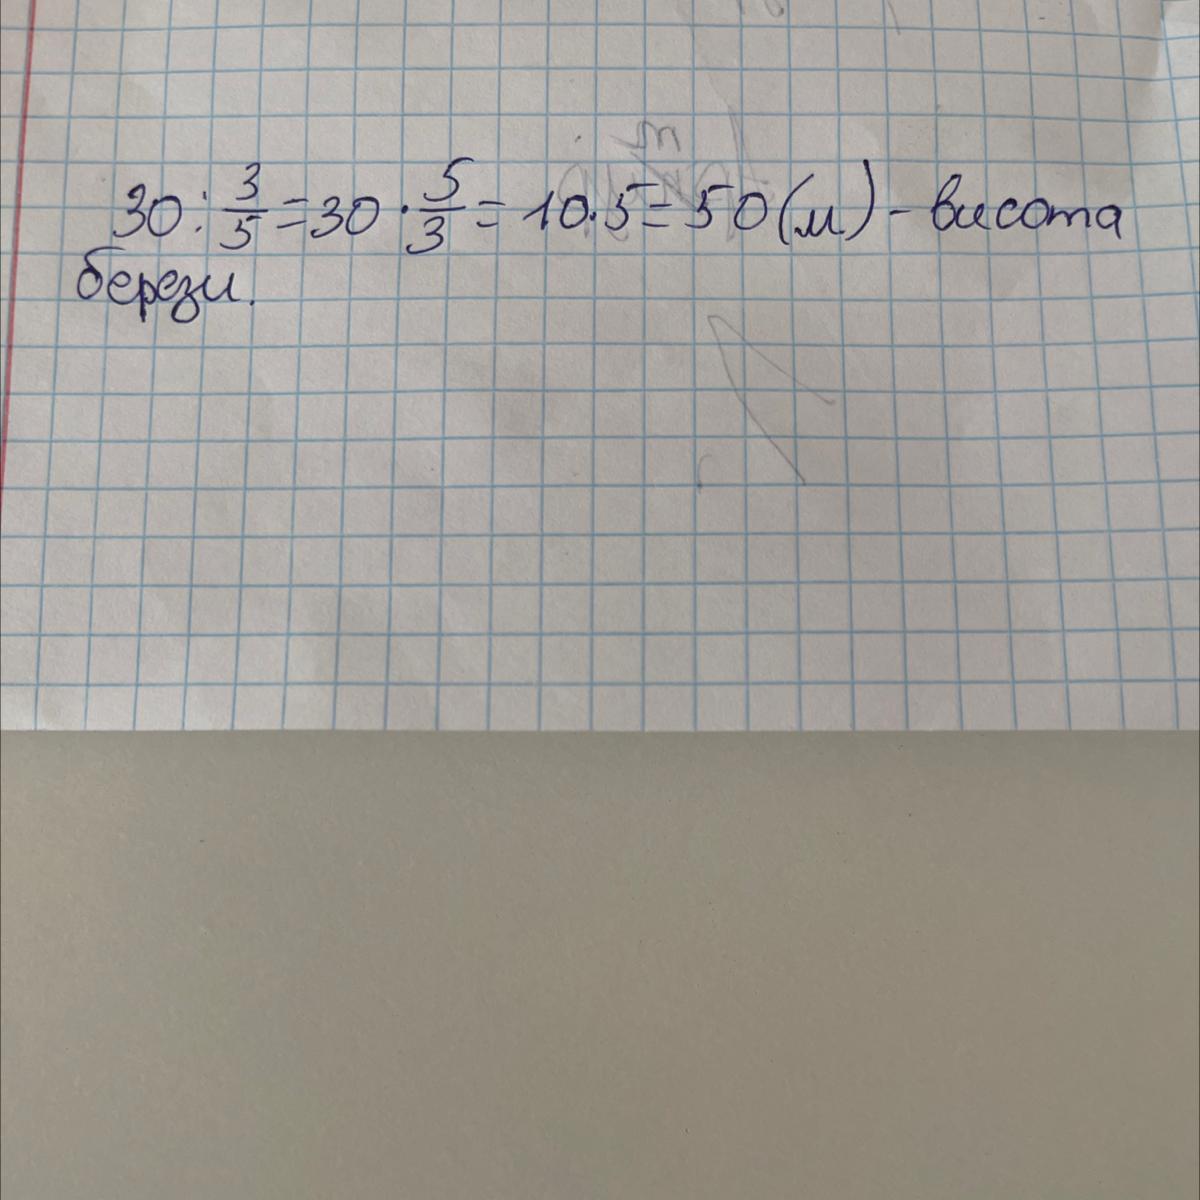 30 : 3/5 = 30 · 5/3 = 10 · 5 = 50 (м) - висота
берези.